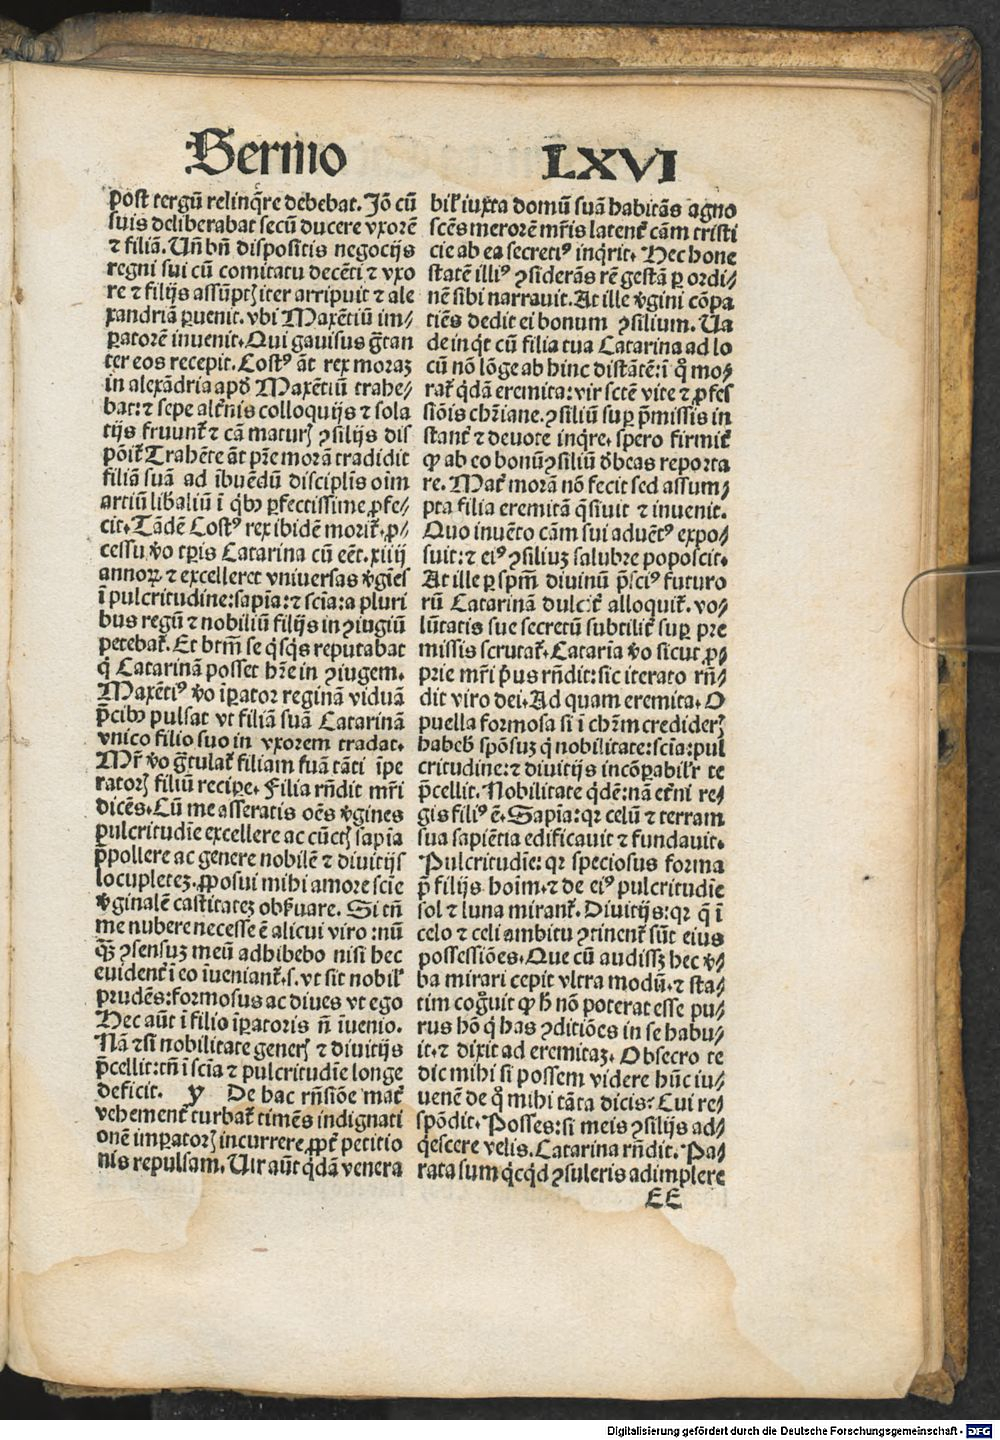 Sermo LXVI
post tergū relinq̄re debebat. Jō cū
suis deliberabat secū ducere vxorē
⁊ filiā. Uñ bñ dispositis negocijs
regni sui cū comitatu decēti ⁊ vxo
re ⁊ filijs assūptꝭ iter arripuit ⁊ ale
xandriā ꝑuenit. vbi Maxētiū im⸗
ꝑatorē inuenit. Qui gauisus g̃tan
ter eos recepit. Costꝰ āt rex moraꝫ
in alexādria apđ Maxētiū trahe⸗
bat: ⁊ sepe alt̃nis colloquijs ⁊ sola
tijs fruunt̃ ⁊ cā maturꝭ ꝯsilijs dis
pōit̃ Trahēte āt pr̄e morā tradidit
filiā suā ad ībuēdū disciplīs oīm
artiū libaliū ī q̇bꝫ ꝑfectissime ꝓfe⸗
cit. Tādē Costꝰ rex ibidē morit̃. ꝓ⸗
cessu ꝟo tꝑis Catarina cū eēt. xiiij
annoꝝ ⁊ excelleret vniuersas ꝟgīes
ī pulcritudine: sapīa: ⁊ scīa: a pluri
bus regū ⁊ nobiliū filijs in ꝯiugiū
petebat̃. Et btm̄ se q̇sq̇s reputabat
q̇ Catarinā posset hr̄e in ꝯiugem.
Maxētiꝰ ꝟo īꝑator reginā viduā
p̄cibꝫ pulsat vt filiā suā Catarinā
vnico filio suo in vxorem tradat.
Mr̄ ꝟo g̃tulat̃ filiam suā tāti īpe
ratorꝭ filiū reciꝑe. Filia rñdit mr̄i
dicēs. Cū me asseratis oēs ꝟgines
pulcritudīe excellere ac cūctꝭ sapīa
p̄pollere ac genere nobilē ⁊ diuitijs
locupleteꝫ. ꝓposui mihi amore scīe
ꝟginalē castitateꝫ obẜuare. Si tñ
me nubere necesse ē alicui viro: nū
q̄ꝫ ꝯsensuꝫ meū adhibebo nisi hec
euident̃ ī eo īueniant̃. s. vt sit nobilꝭ
prudēs: formosus ac diues vt ego
Hec aūt ī filio īꝑatoris ñ īuenio.
Nā ⁊ si nobilitate generꝭ ⁊ diuitijs
p̄cellit: tñ ī scīa ⁊ pulcritudīe longe
deficit. y De hac rñsiōe mat̃
vehement̃ turbat̃ timēs indignati
onē imꝑatorꝭ incurrere ꝓpt̃ petitio
nis repulsam. Uir aūt q̇dā venera
bilꝭ iuxta domū suā habitās agno
scēs merorē mr̄is latent̃ cām tristi
cie ab ea secretiꝰ inq̇rit. Hec hone
statē illiꝰ ꝯsiderās rē gestā ꝑ ordi⸗
nē sibi narrauit. At ille ꝟgini cōpa
tiēs dedit ei bonum ꝯsilium. Ua
de inq̇t cū filia tua Catarina ad lo
cū nō lōge ab hinc distātē: ī q̊ mo⸗
rat̃ q̇dā eremita: vir sctē vite ⁊ ꝓfes
siōis chr̄iane. ꝯsiliū suꝑ p̄missis in
stant̃ ⁊ deuote inq̇re. spero firmit̃
ꝙ ab eo bonū ꝯsiliū đbeas reporta
re. Mat̃ morā nō fecit sed assum⸗
pta filia eremitā q̄siuit ⁊ inuenit.
Quo inuēto cām sui aduētꝰ expo⸗
suit: ⁊ eiꝰ ꝯsiliuꝫ salubre poposcit.
At ille ꝑ spm̄ diuinū p̄sciꝰ futuro
rū Catarinā dulcit̃ alloquit̃. vo⸗
lūtatis sue secretū subtilit̃ suꝑ pre
missis scrutat̃. Cataria ꝟo sicut ꝓ⸗
prie mr̄i p̄us rñdit: sic iterato rñ⸗
dit viro dei. Ad quam eremita. O
puella formosa si ī chr̄m crediderꝭ
habeb̄ spōsuꝫ q̇ nobilitate: scīa: pul
critudine: ⁊ diuitijs incōꝑabilr̄ te
p̄cellit. Nobilitate q̇dē: nā et̃ni re⸗
gis filiꝰ ē. Sapīa: qꝛ celū ⁊ terram
sua sapiētia edificauit ⁊ fundauit.
Pulcritudīe: qꝛ speciosus forma
p̄ filijs hoīm. ⁊ de eiꝰ pulcritudīe
sol ⁊ luna mirant̃. Diuitijs: qꝛ q̄ ī
celo ⁊ celi ambitu ꝯtinent̃ sūt eius
possessiōes. Que cū audissꝫ hec ꝟ⸗
ba mirari cepit vltra modū. ⁊ sta⸗
tim cog̊uit ꝙ h̄ nō poterat esse pu⸗
rus hō q̇ has ꝯditiōes in se habu⸗
it. ⁊ dixit ad eremitaꝫ. Obsecro te
dic mihi si possem videre hūc iu⸗
uenē de q̊ mihi tāta dicis? Cui re⸗
spōdit. Posses: si meis ꝯsilijs ad⸗
q̇escere velis. Catarina rñdit. Pa⸗
rata sum q̇cq̇d ꝯsuleris adimplere
EE
Digitalisierung gefördert durch die Deutsche Forschungsgemeinschaft - DFG